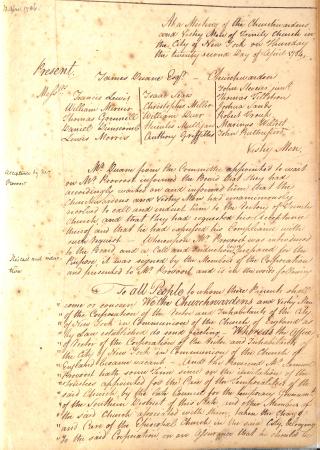 22 Apr. 1784.
At a Meeting of the Churchwardens
and Vestry Men of Trinity Church in
the City of New York on Thursday
the twenty second Day of April 1784.
Present.
James Duane Esqr. Churchwarden
Messrs.
Francis Lewis Isaac Sears John Stevens junr.
William Mercier Christopher Miller Thomas Tillotson
Thomas Grennell William Duer Joshua Sands
Daniel Dunscomb Hercules Mulligan Robert Troup
Lewis Morris Anthony Griffiths Marinus Willett
John Rutherfurd
Vestry Men.
Acceptance by Mr.
Provost
Mr. Duane from the Committee appointed to wait
on Mr. Provost informed the Board that they had
accordingly waited on and informed him that the
Churchwardens and Vestry Men had unanimously
resolved to call and induct him to the Rectory of Trinity
Church, and that they had requested his Acceptance
thereof and that he had signified his Compliance with
such request. Whereupon Mr. Provost was introduced
to the Board and a Call and Induction prepared for the
Purpose it was signed by the Members of the Corporation
and presented to Mr. Provost and is in the words following
His call and induc-
tion
To all People to whom these Presents shall
come or concern We the Churchwardens and Vestry Men
of the Corporation of the Rector and Inhabitants of the City
of New York in Communion of the Church of England as
by Law established do send Greeting. Whereas the Office
of Rector of the Corporation of the Rector and Inhabitants
the City of New York in Communion of the Church of
England became vacant And the Reverend Mr. Samuel
Provost hath some time since on the invitation of the
Trustees appointed for the Care of the Temporalities of the
said Church by the late Council for the temporary Governmt.
of the Southern District of this State and other Members of
the said Church associated with them, taken the Charge
and Care of the Episcopal Church in the said City, belonging
to the said Corporation on an Assurance that he should be